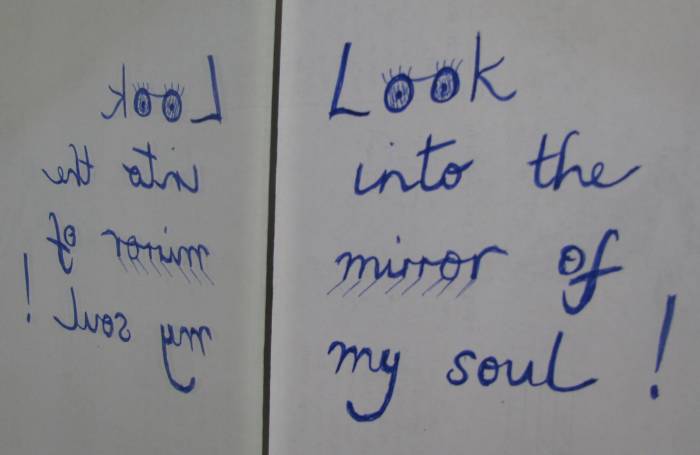 Look
into the
mirror of
my soul!
Look
into the
mirror of
my soul !